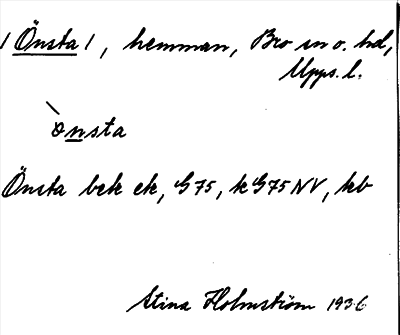 /Önsta/, hemman, Bro sn o. hd,
Upps. l.
ònsta
Önsta bek ek, G75, kG75NV, kb
Stina Holmström 1936